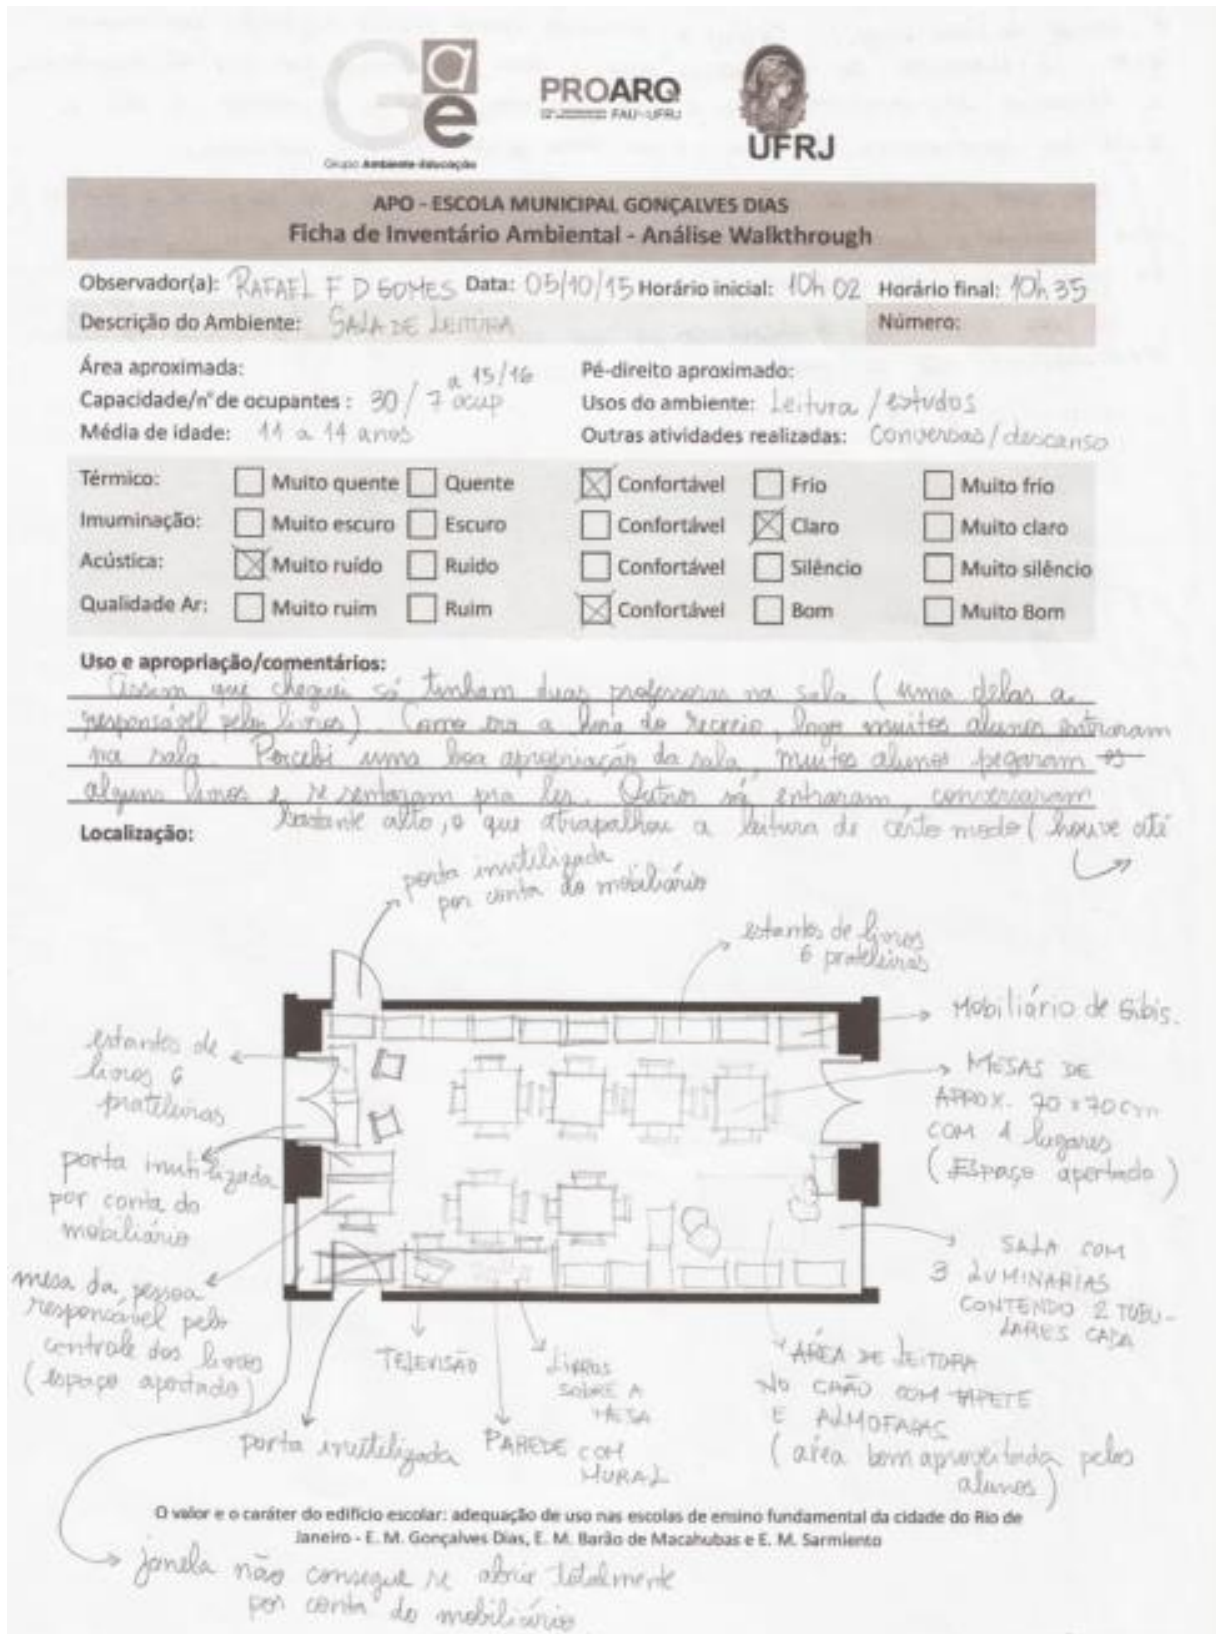 Gae
Grupo Ambiente-Educação
PROARQ
FAU-UFRJ
UFRJ
APO - ESCOLA MUNICIPAL GONÇALVES DIAS
Ficha de Inventário Ambiental - Análise Walkthrough
Observador(a): RAFAEL F D GOMES Data: 05/10/15 Horário inicial: 10h 02 Horário final: 10h 35
Descrição do Ambiente: SALA DE LEITURA Número:
Área aproximada: Pé-direito aproximado:
Capacidade/nº de ocupantes : 30 / 7 a 15/16 ocup Usos do ambiente: Leitura / estudos
Média de idade: 11 a 14 anos Outras atividades realizadas: Conversas/descanso
Térmico: Muito quente Quente Confortável Frio Muito frio
Imuminação: Muito escuro Escuro Confortável Claro Muito claro
Acústica: Muito ruído Ruido Confortável Silêncio Muito silêncio
Qualidade Ar: Muito ruim Ruim Confortável Bom Muito Bom
Uso e apropriação/comentários:
Assim que cheguei só tinham duas professoras na sala (uma delas a
responsável pelos livros). Como era a hora do recreio, logo muitos alunos entraram
na sala. Percebi uma boa apropriação da sala, muitos alunos pegaram os
alguns livros e se sentaram pra ler. Outros só entraram, conversaram
bastante alto, o que atrapalhou a leitura de certo modo (houve até
Localização:
porta inutilizada
por conta do mobiliário
estantes de livros
6 prateleiras
Mobiliário de Gibis.
estantes de
livros 6
prateleiras
MESAS DE
APROX. 70x70cm
COM 4 lugares
(Espaço apertado)
porta inutilizada
por conta do
mobiliário
SALA COM
3 LUMINARIAS
CONTENDO 2 TUBU-
LARES CADA
mesa da pessoa
responsável pelo
controle dos livros
(espaço apertado)
TELEVISÃO
LIVROS
SOBRE A
MESA
ÁREA DE LEITURA
NO CHÃO COM TAPETE
E ALMOFADAS
(área bem aproveitada pelos
alunos)
porta inutilizada
PAREDE COM
MURAL
O valor e o caráter do edifício escolar: adequação de uso nas escolas de ensino fundamental da cidade do Rio de
Janeiro - E. M. Gonçalves Dias, E. M. Barão de Macahubas e E. M. Sarmiento
janela não consegue se abrir totalmente
por conta do mobiliário